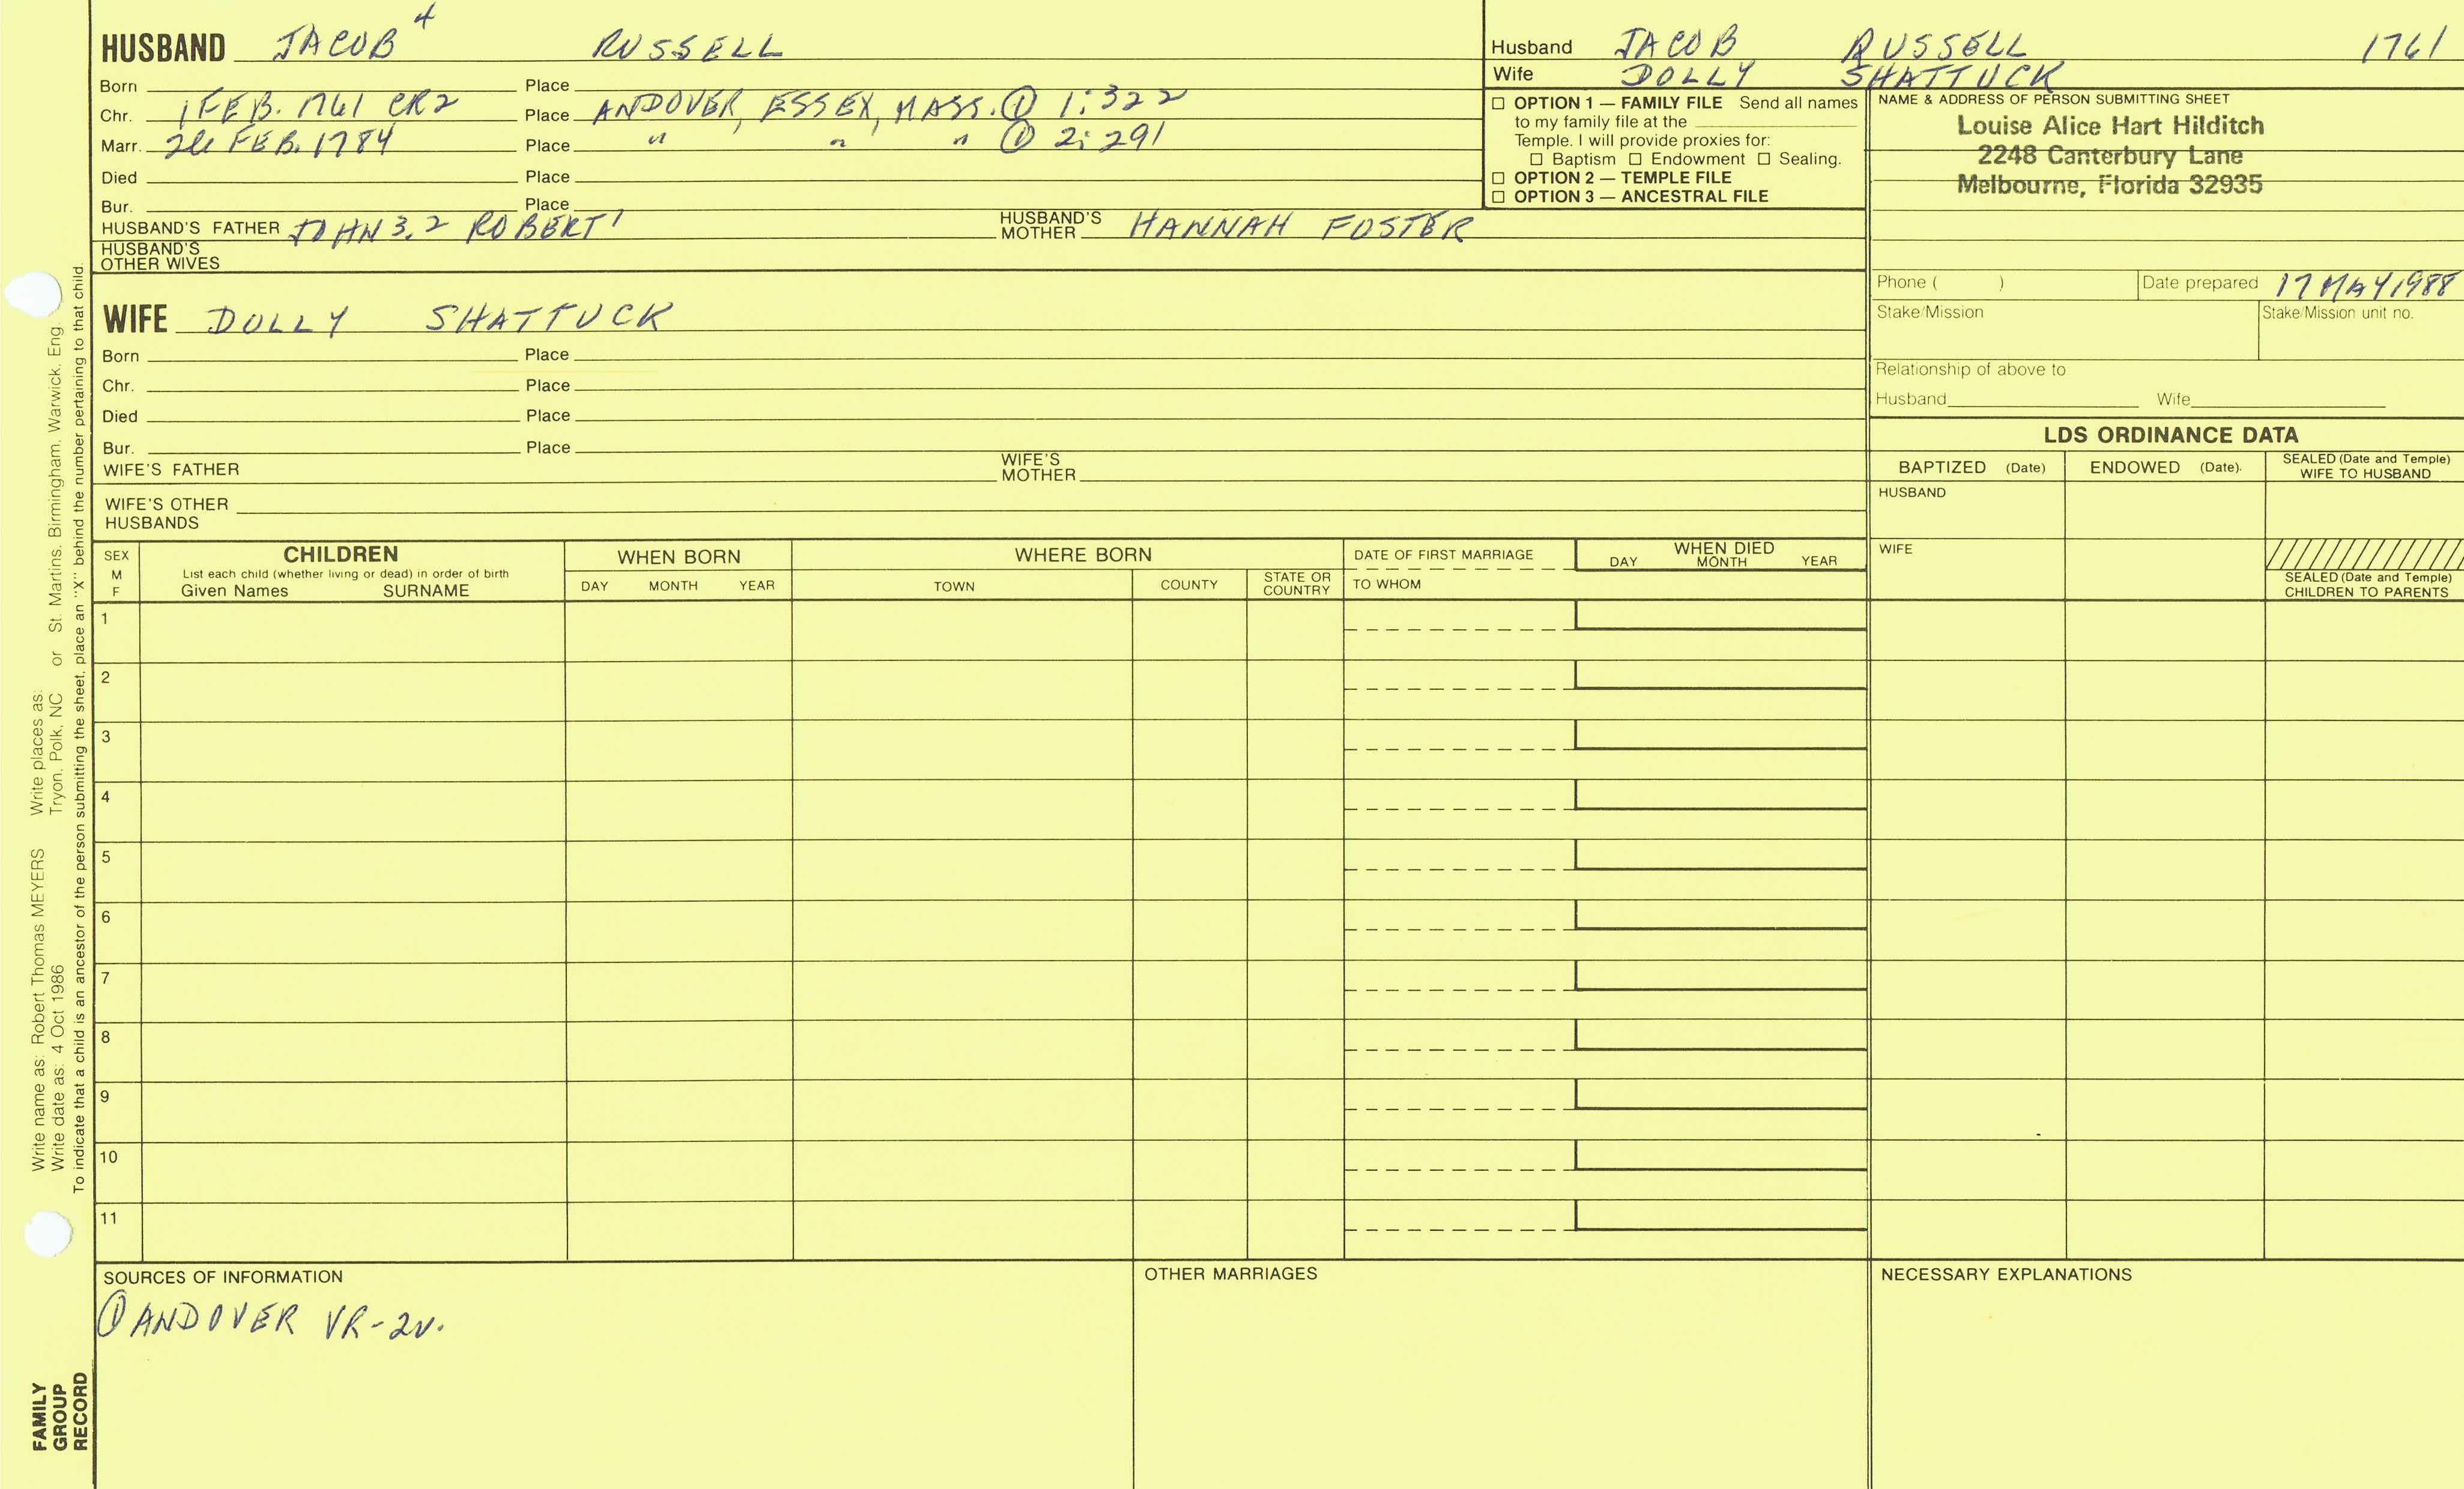 HUSBAND JACOB⁴ RUSSELL
Born Place
Chr. 1 FEB. 1761 CR2 Place ANDOVER, ESSEX, MASS. ① 1:322
Marr. 26 FEB. 1784 Place " " " ① 2:291
Died Place
Bur. Place
HUSBAND'S FATHER JOHN 3,2 ROBERT¹ HUSBAND'S MOTHER HANNAH FOSTER
HUSBAND'S
OTHER WIVES
WIFE DOLLY SHATTUCK
Born Place
Chr. Place
Died Place
Bur. Place
WIFE'S FATHER WIFE'S MOTHER
WIFE'S OTHER
HUSBANDS
Husband JACOB RUSSELL 1761
Wife DOLLY SHATTUCK
☐ OPTION 1 — FAMILY FILE Send all names
to my family file at the
Temple. I will provide proxies for:
☐ Baptism ☐ Endowment ☐ Sealing.
☐ OPTION 2 — TEMPLE FILE
☐ OPTION 3 — ANCESTRAL FILE
NAME & ADDRESS OF PERSON SUBMITTING SHEET
Louise Alice Hart Hilditch
2248 Canterbury Lane
Melbourne, Florida 32935
Phone ( ) Date prepared 17 MAY 1988
Stake/Mission Stake/Mission unit no.
Relationship of above to
Husband Wife
LDS ORDINANCE DATA
BAPTIZED (Date) ENDOWED (Date). SEALED (Date and Temple)
WIFE TO HUSBAND
HUSBAND
WIFE
SEALED (Date and Temple)
CHILDREN TO PARENTS
SEX
M
F
CHILDREN
List each child (whether living or dead) in order of birth
Given Names SURNAME
WHEN BORN
DAY MONTH YEAR
WHERE BORN
TOWN COUNTY STATE OR
COUNTRY
DATE OF FIRST MARRIAGE
TO WHOM
WHEN DIED
DAY MONTH YEAR
1
2
3
4
5
6
7
8
9
10
11
SOURCES OF INFORMATION
① ANDOVER VR-2v.
OTHER MARRIAGES
NECESSARY EXPLANATIONS
Write name as: Robert Thomas MEYERS Write places as:
Write date as: 4 Oct 1986 Tryon, Polk, NC or St. Martins, Birmingham, Warwick, Eng.
To indicate that a child is an ancestor of the person submitting the sheet, place an "X" behind the number pertaining to that child.
FAMILY
GROUP
RECORD